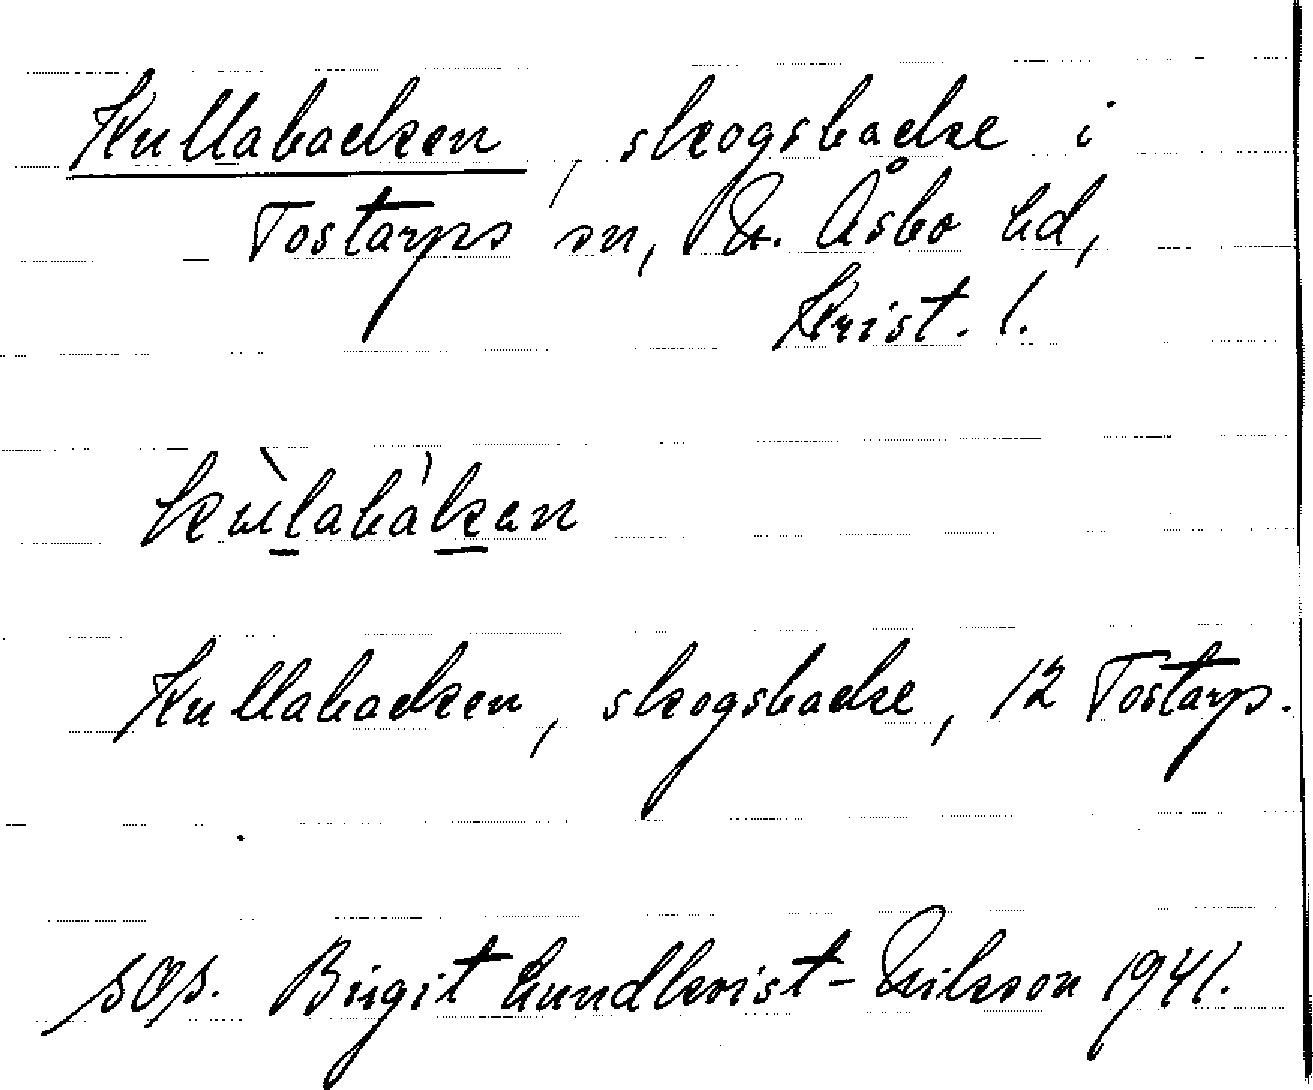 Kullabacken, skogsbacke i
Tostarps sn, N. Åsbo hd,
Krist. l.
Kullabacken, skogsbacke, 12 Tostarp.
sOs. Birgit Lundkvist-Eriksson 1941.